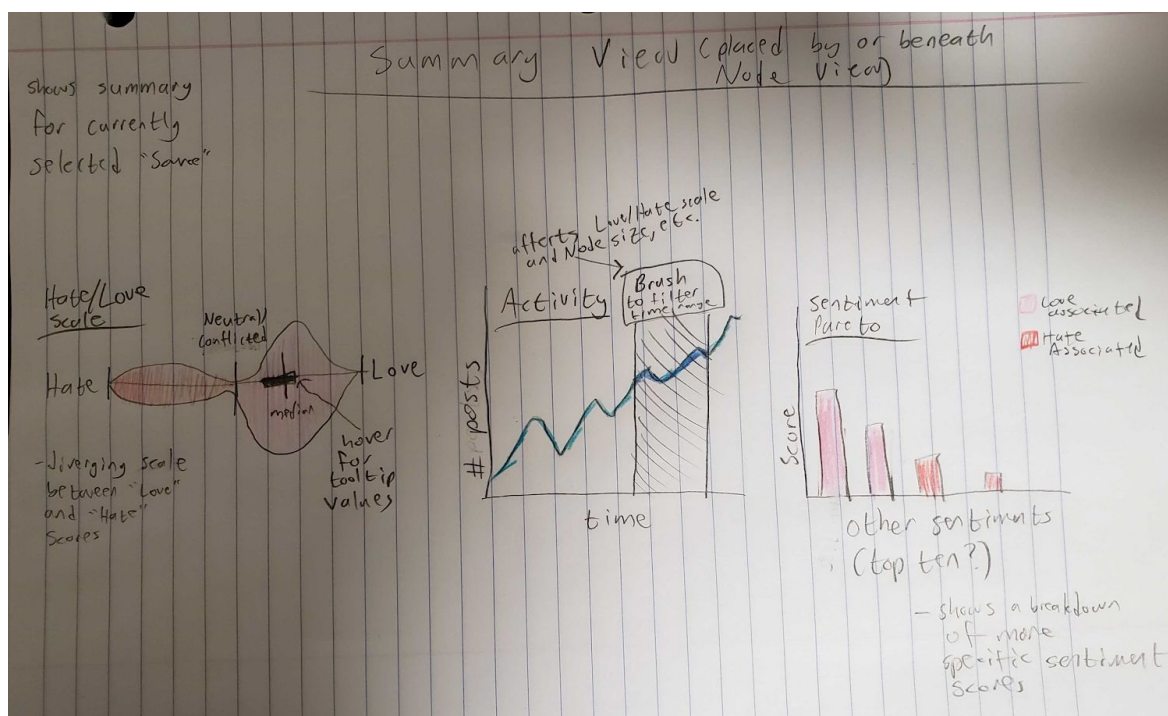 Summary View (placed by or beneath
Node View)
shows summary
for currently
selected "Source"
Hate/Love
scale
Neutral/
conflicted
Hate
Love
median
hover
for
tooltip
values
- diverging scale
between "Love"
and "Hate"
scores
affects Love/Hate scale
and Node size, etc.
Activity
Brush
to filter
time range
# posts
time
Sentiment
Pareto
Love
associated
Hate
Associated
Score
other sentiments
(top ten?)
- shows a breakdown
of more
specific sentiment
scores